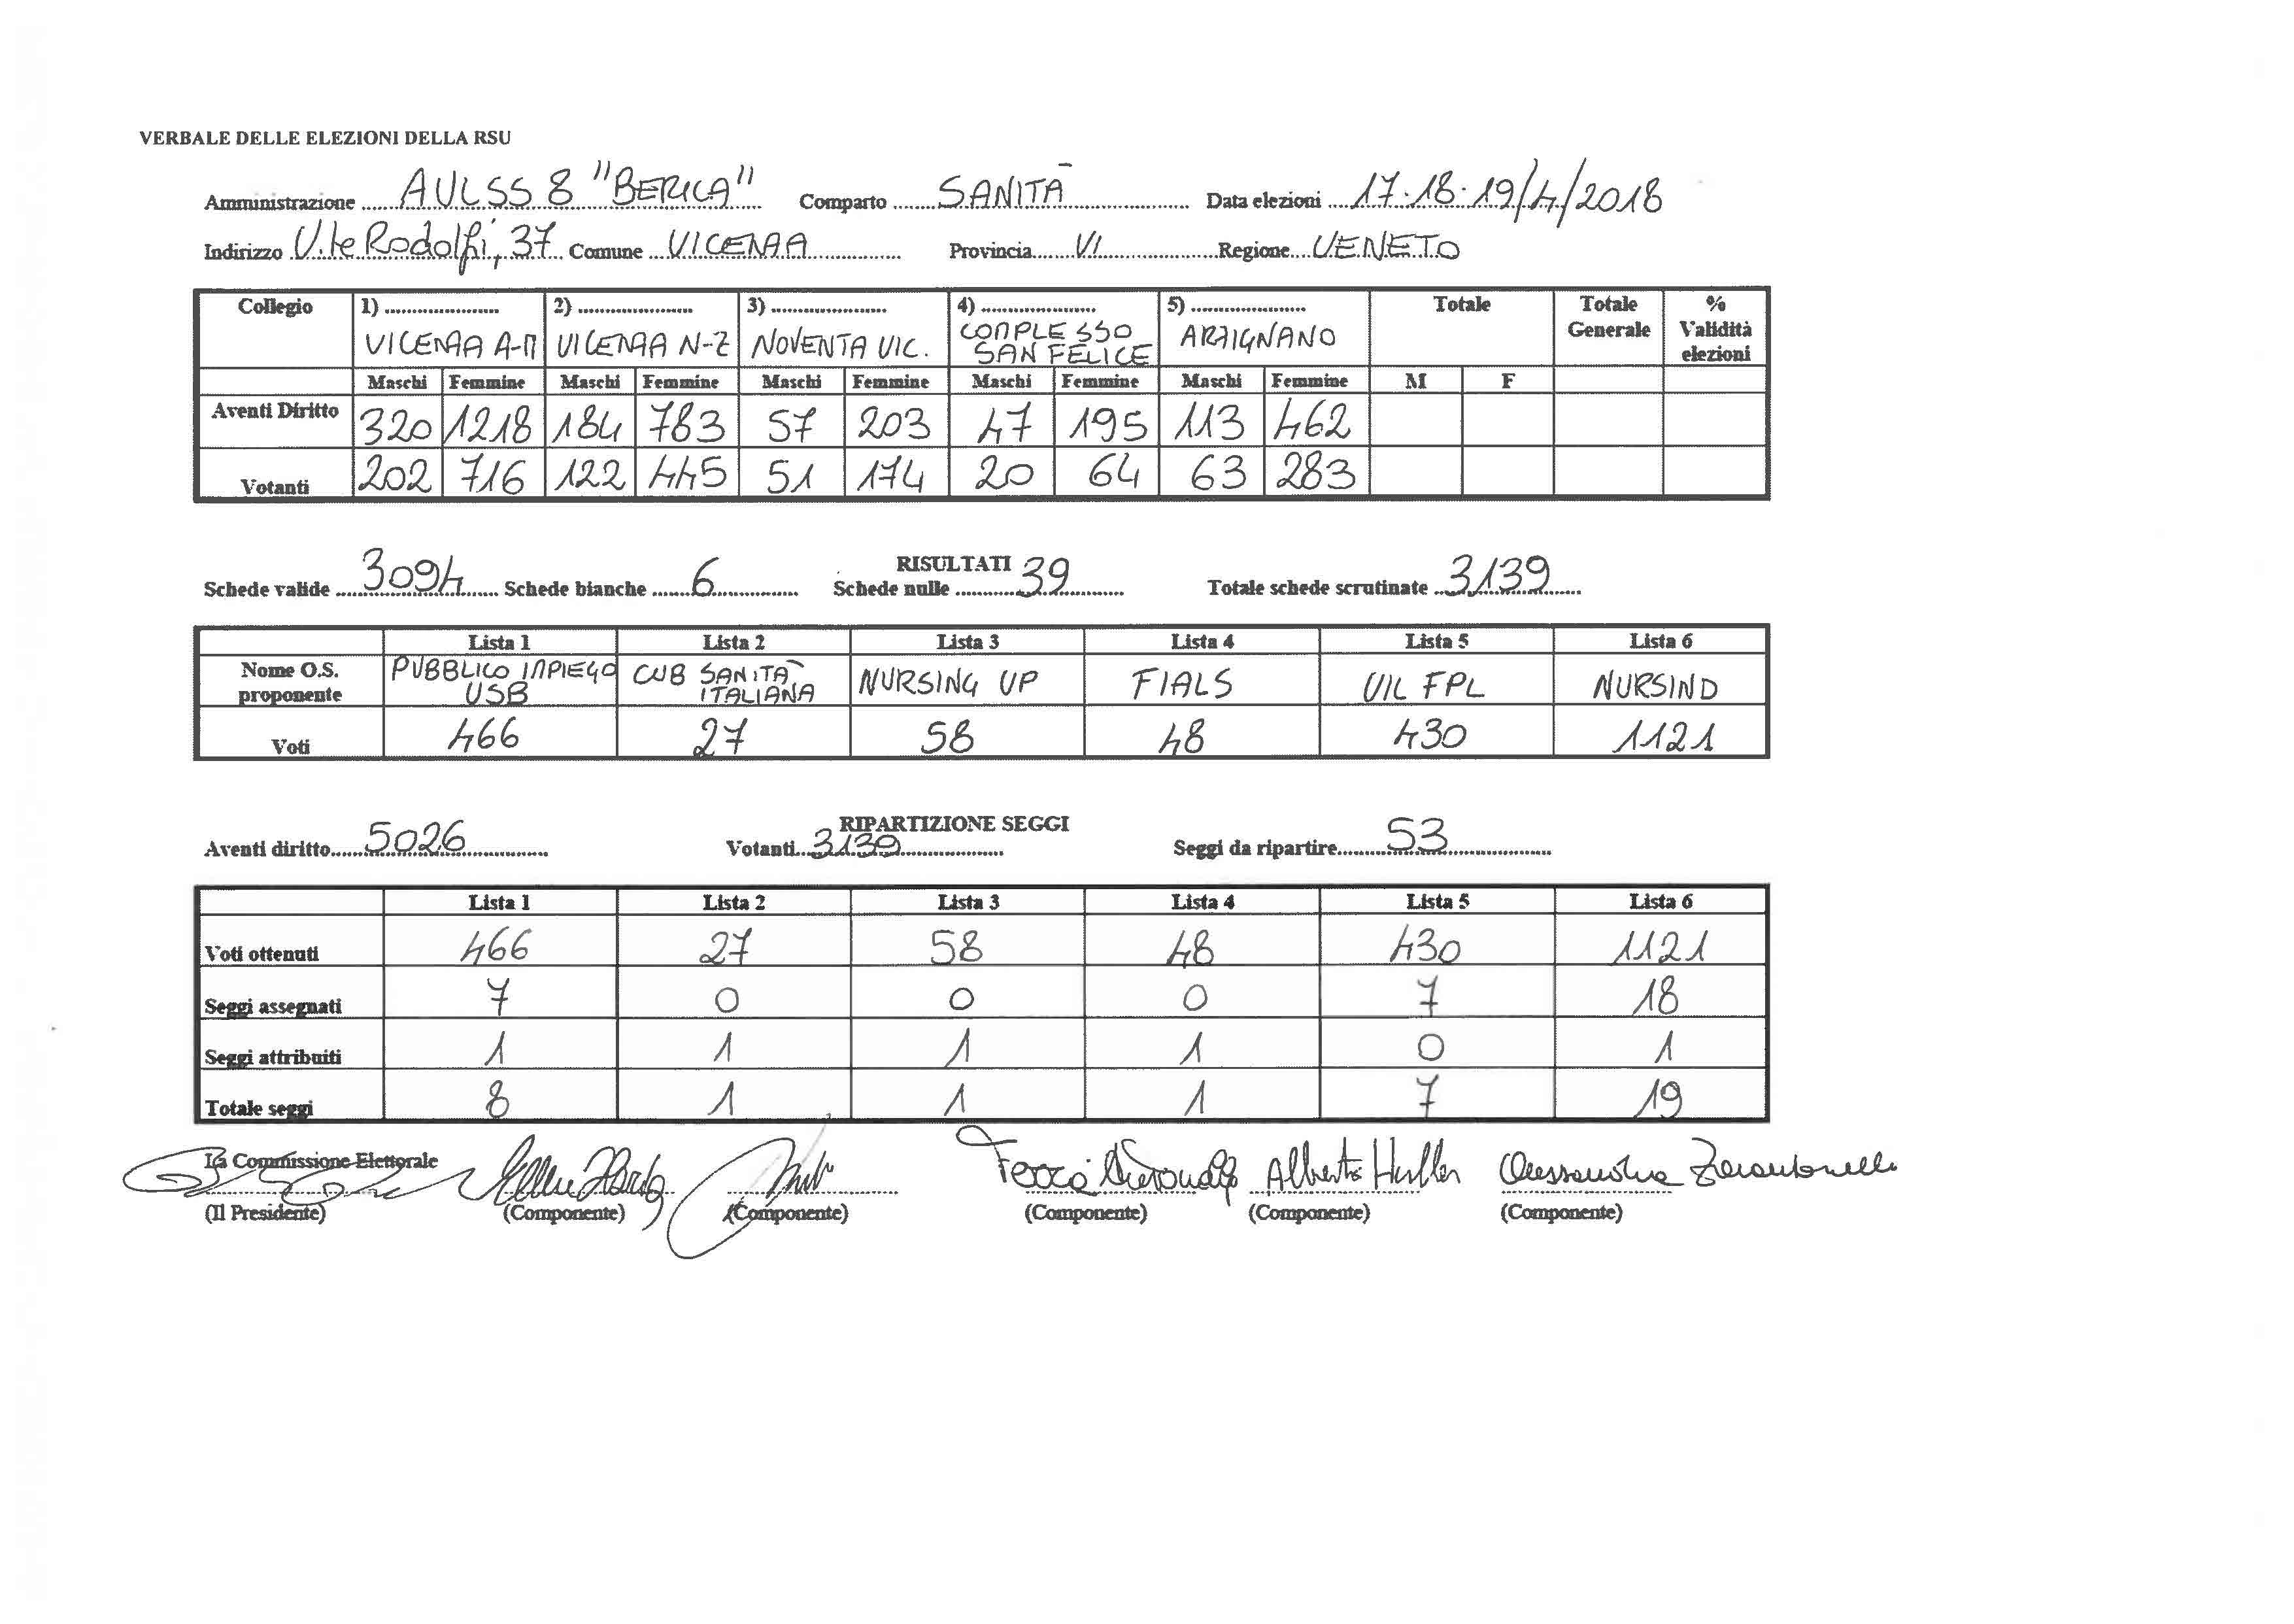 VERBALE DELLE ELEZIONI DELLA RSU
Amministrazione AULSS 8 "BERICA" Comparto SANITÀ Data elezioni 17-18-19/4/2018
Indirizzo V.le Rodolfi, 37 Comune VICENZA Provincia VI Regione VENETO
Collegio 1) 2) 3) 4) 5) Totale Totale Generale % Validità elezioni
VICENZA A-M VICENZA N-Z NOVENTA VIC. COMPLESSO SAN FELICE ARZIGNANO
Maschi Femmine Maschi Femmine Maschi Femmine Maschi Femmine Maschi Femmine M F
Aventi Diritto 320 1218 184 783 57 203 47 195 113 462
Votanti 202 716 122 445 51 174 20 64 63 283
RISULTATI
Schede valide 3094 Schede bianche 6 Schede nulle 39 Totale schede scrutinate 3139
Lista 1 Lista 2 Lista 3 Lista 4 Lista 5 Lista 6
Nome O.S. proponente PUBBLICO IMPIEGO USB CUB SANITÀ ITALIANA NURSING UP FIALS UIL FPL NURSIND
Voti 466 27 58 48 430 1121
RIPARTIZIONE SEGGI
Aventi diritto 5026 Votanti 3139 Seggi da ripartire 53
Lista 1 Lista 2 Lista 3 Lista 4 Lista 5 Lista 6
Voti ottenuti 466 27 58 48 430 1121
Seggi assegnati 7 0 0 0 7 18
Seggi attribuiti 1 1 1 1 0 1
Totale seggi 8 1 1 1 7 19
La Commissione Elettorale
Alessandra Zarantonello
(Il Presidente) (Componente) (Componente) (Componente) (Componente) (Componente)